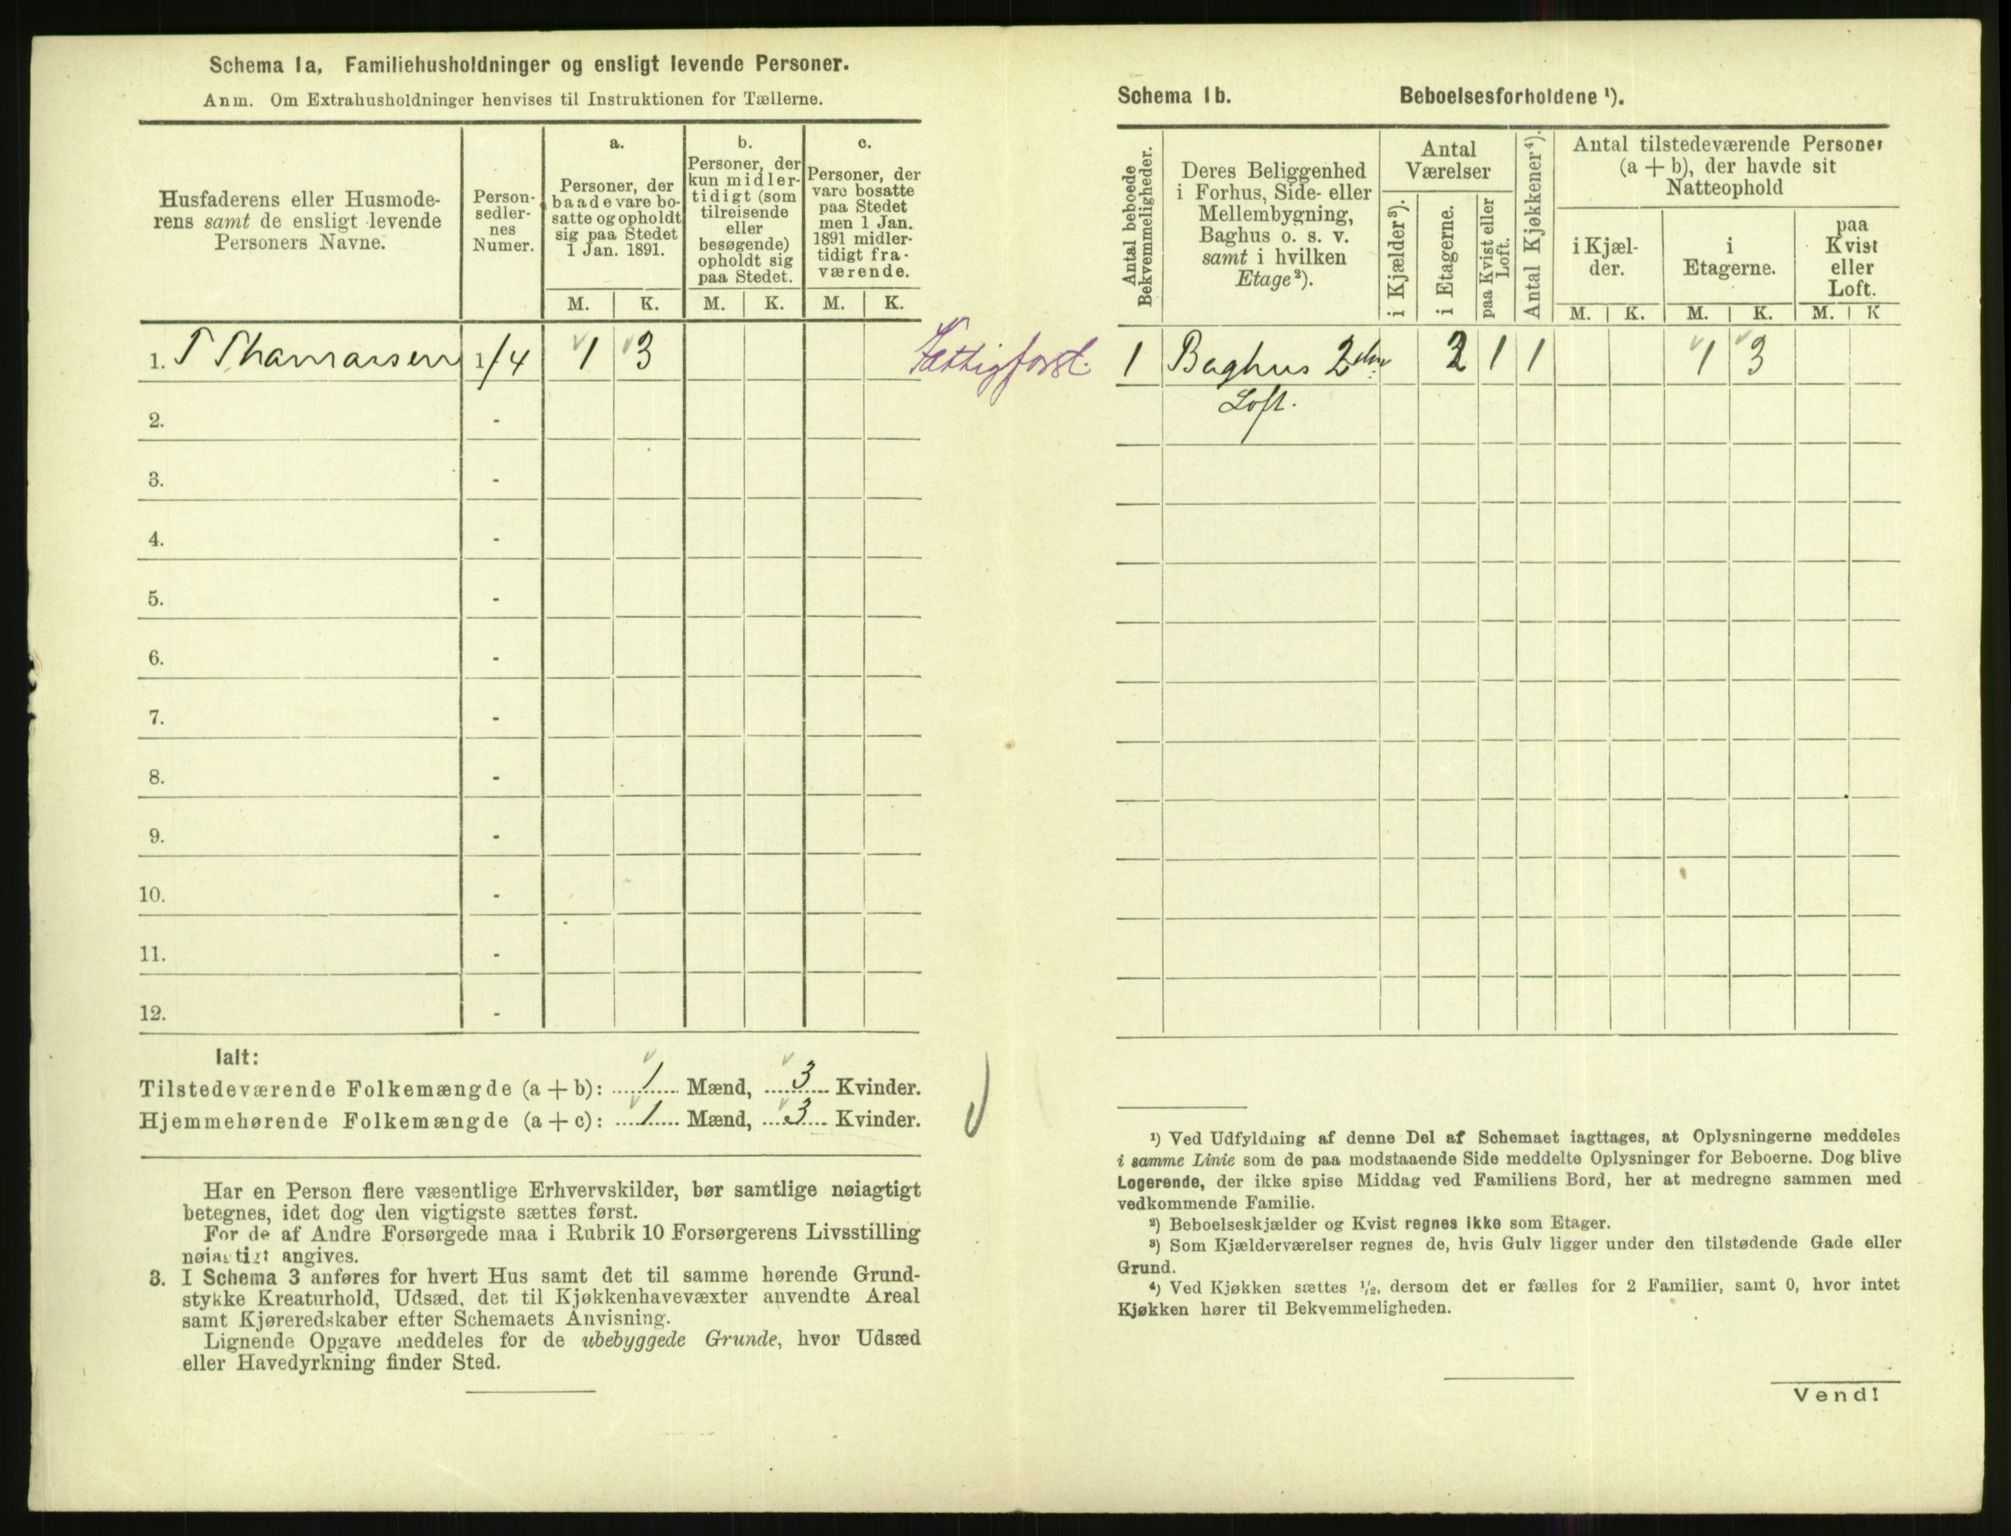 Schema 1a. Familiehusholdninger og ensligt levende Personer.
Anm. Om Extrahusholdninger henvises til Instruktionen for Tællerne.
Husfaderens eller Husmode-
rens samt de ensligt levende
Personers Navne.
Person-
sedler-
nes
Numer.
a.
Personer, der
baade vare bo-
satte og opholdt
sig paa Stedet
1 Jan. 1891.
b.
Personer, der
kun midler-
tidigt (som
tilreisende
eller
besøgende)
opholdt sig
paa Stedet.
c.
Personer, der
vare bosatte
paa Stedet
men 1 Jan.
1891 midler-
tidigt fra-
værende.
M. K. M. K. M. K.
1. T Thomassen 1/4 1 3
Fattigforst.
2. -
3. -
4. -
5. -
6. -
7. -
8. -
9. -
10. -
11. -
12. -
Ialt:
Tilstedeværende Folkemængde (a + b): 1 Mænd, 3 Kvinder.
Hjemmehørende Folkemængde (a + c): 1 Mænd, 3 Kvinder.
Har en Person flere væsentlige Erhvervskilder, bør samtlige nøiagtigt
betegnes, idet dog den vigtigste sættes først.
For de af Andre Forsørgede maa i Rubrik 10 Forsørgerens Livsstilling
nøiagtigt angives.
3. I Schema 3 anføres for hvert Hus samt det til samme hørende Grund-
stykke Kreaturhold, Udsæd, det til Kjøkkenhavevæxter anvendte Areal
samt Kjøreredskaber efter Schemaets Anvisning.
Lignende Opgave meddeles for de ubebyggede Grunde, hvor Udsæd
eller Havedyrkning finder Sted.
Schema 1b. Beboelsesforholdene ¹).
Antal beboede
Bekvemmeligheder.
Deres Beliggenhed
i Forhus, Side- eller
Mellembygning,
Baghus o. s. v.
samt i hvilken
Etage ²).
Antal
Værelser
i Kjælder ³).
i Etagerne.
paa Kvist eller
Loft.
Antal Kjøkkener ⁴).
Antal tilstedeværende Personer
(a + b), der havde sit
Natteophold
i Kjæl-
der.
i
Etagerne.
paa
Kvist
eller
Loft.
M. K. M. K. M. K
1 Baghus 2den 2 1 1 1 3
Loft.
¹) Ved Udfyldning af denne Del af Schemaet iagttages, at Oplysningerne meddeles
i samme Linie som de paa modstaaende Side meddelte Oplysninger for Beboerne. Dog blive
Logerende, der ikke spise Middag ved Familiens Bord, her at medregne sammen med
vedkommende Familie.
²) Beboelseskjælder og Kvist regnes ikke som Etager.
³) Som Kjælderværelser regnes de, hvis Gulv ligger under den tilstødende Gade eller
Grund.
⁴) Ved Kjøkken sættes ¹/₂, dersom det er fælles for 2 Familier, samt 0, hvor intet
Kjøkken hører til Bekvemmeligheden.
Vend!